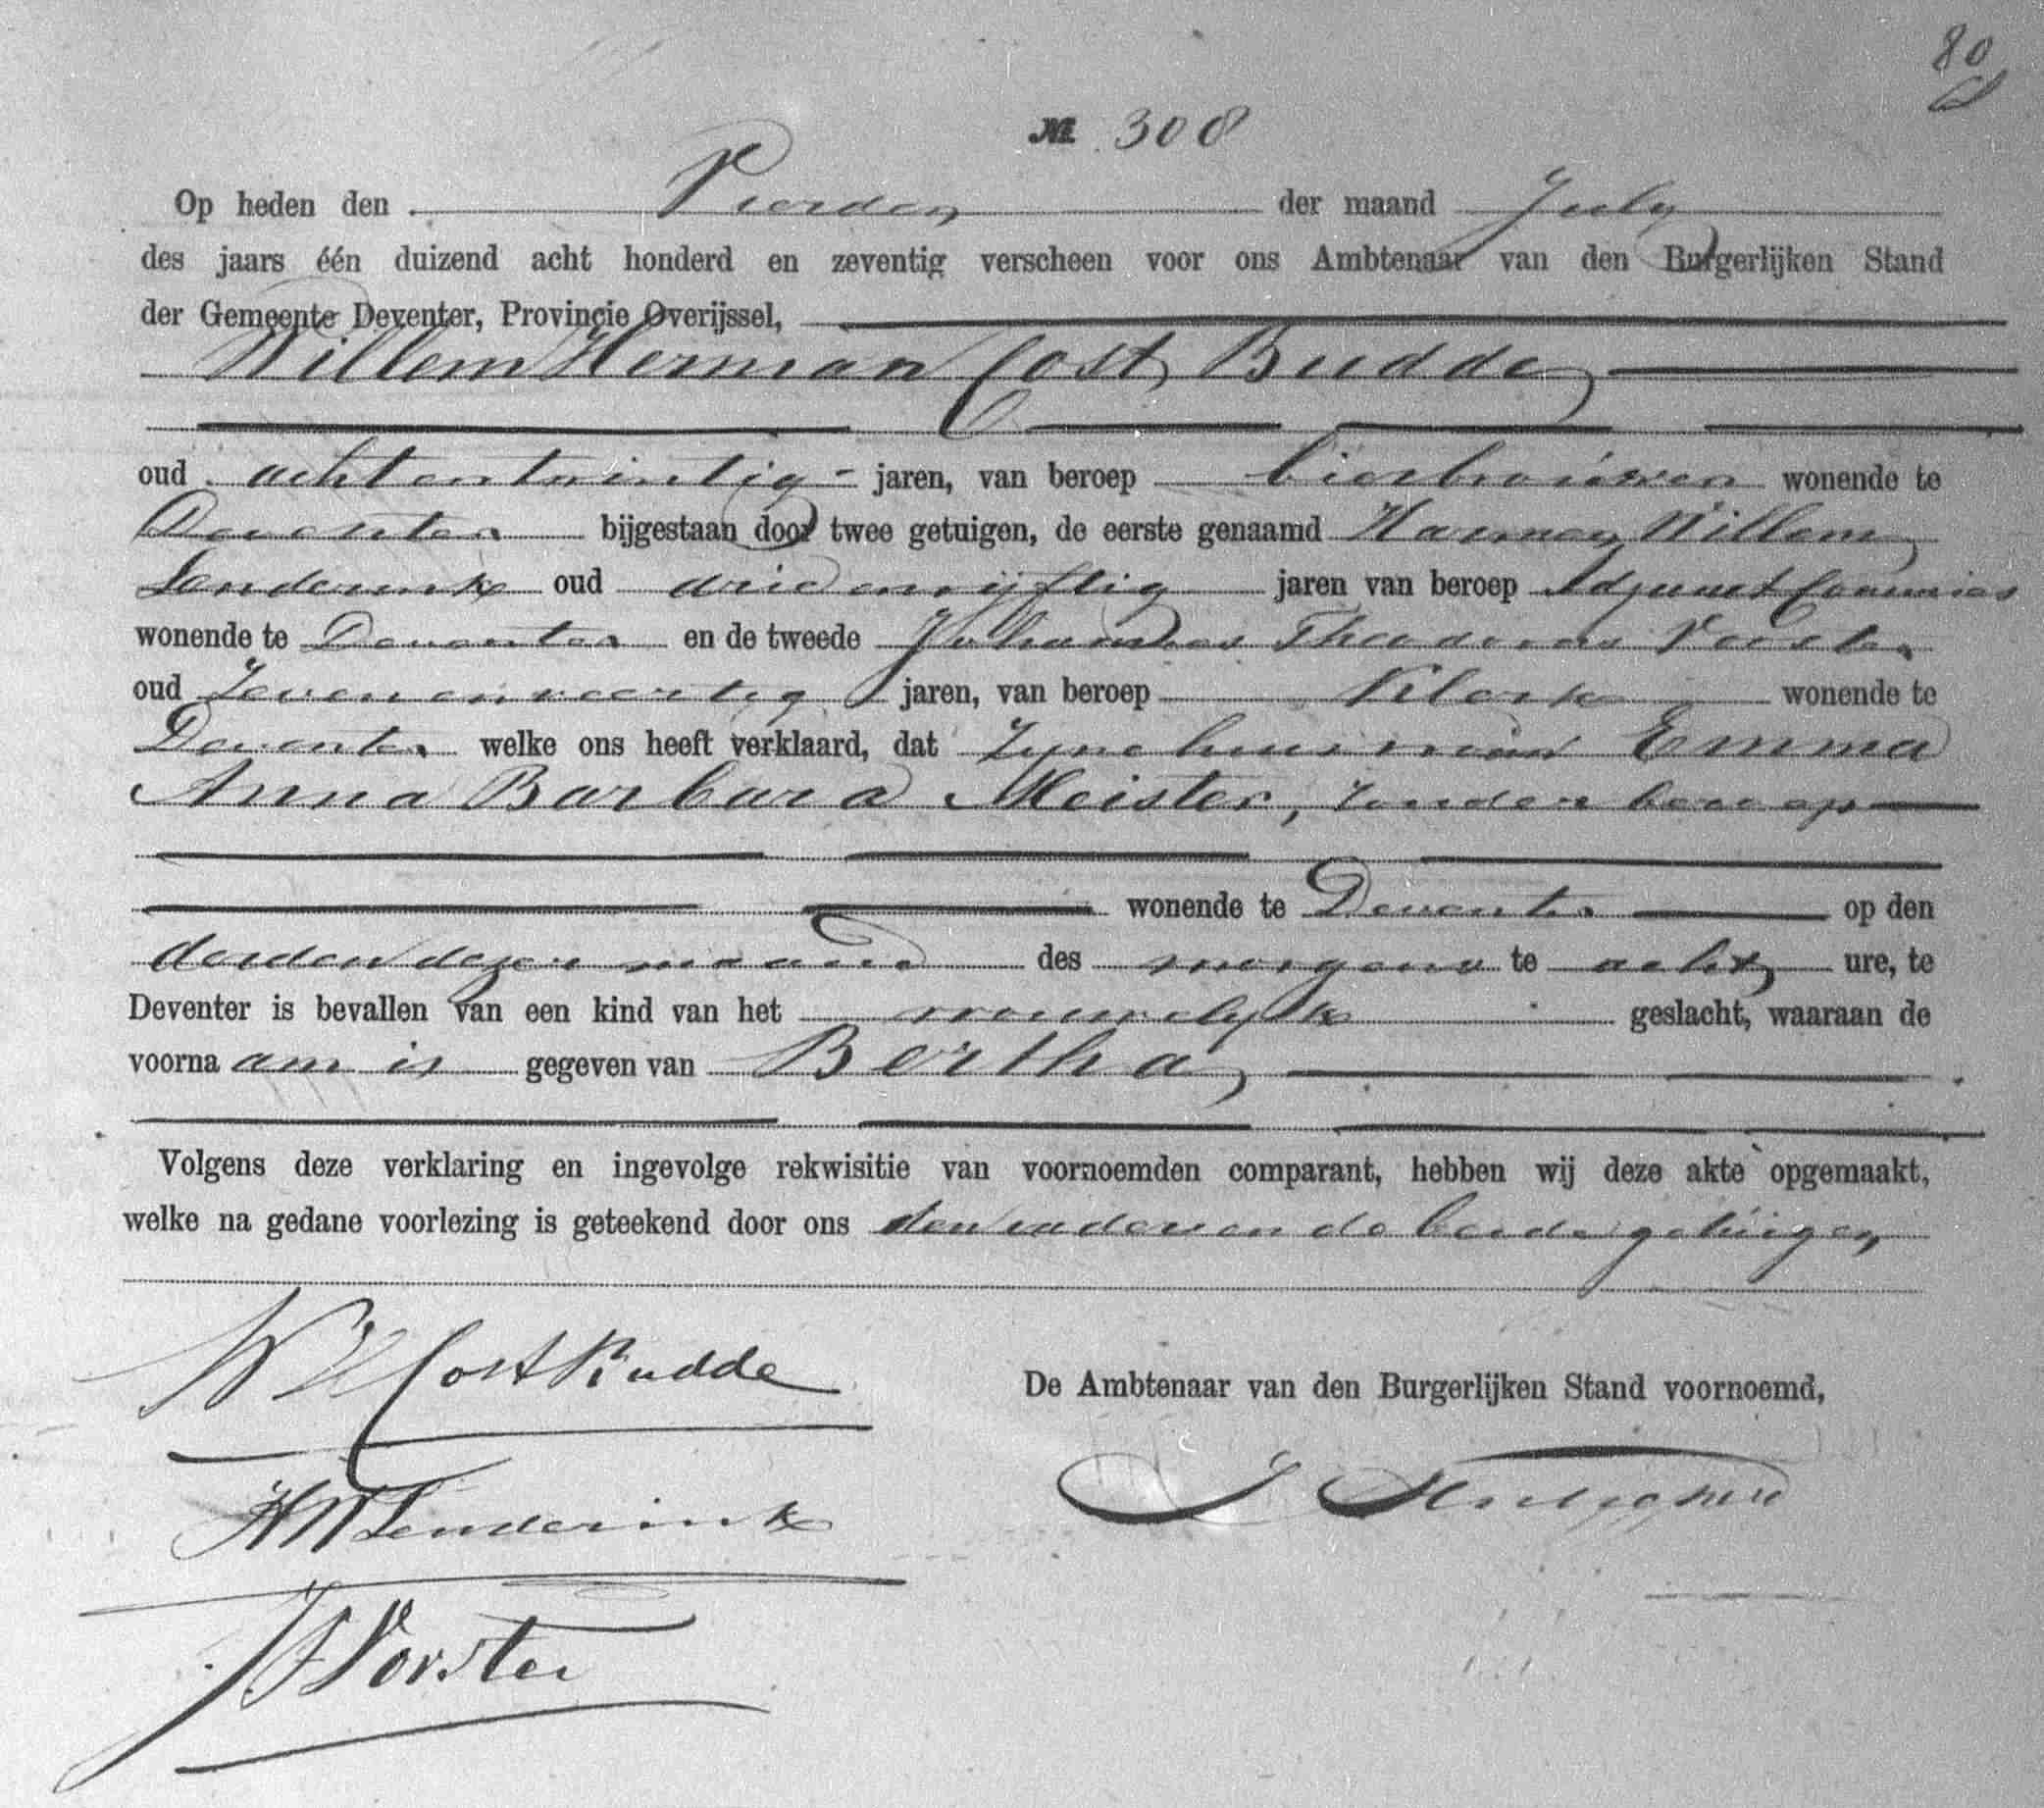 80
№ 308
Op heden den Vierden der maand July
des jaars één duizend acht honderd en zeventig verscheen voor ons Ambtenaar van den Burgerlijken Stand
der Gemeente Deventer, Provincie Overijssel,
Willem Herman Cost Budde
oud achtentwintig jaren, van beroep bierbrouwer wonende te
Deventer bijgestaan door twee getuigen, de eerste genaamd Harmen Willem
Lenderink oud drieenvijftig jaren van beroep Adjunct Commies
wonende te Deventer en de tweede Johannes Theodorus Vorster
oud Zevenenveertig jaren, van beroep Klerk wonende te
Deventer welke ons heeft verklaard, dat Zyne huisvrouw Emma
Anna Barbara Meister, zonder beroep
wonende te Deventer op den
derden dezer maand des morgens te acht ure, te
Deventer is bevallen van een kind van het vrouwelyk geslacht, waaraan de
voorna am is gegeven van Bertha,
Volgens deze verklaring en ingevolge rekwisitie van voornoemden comparant, hebben wij deze akte opgemaakt,
welke na gedane voorlezing is geteekend door ons den vader en de beide getuigen
W H Cost Budde
De Ambtenaar van den Burgerlijken Stand voornoemd,
HW Lenderink
JT Vorster